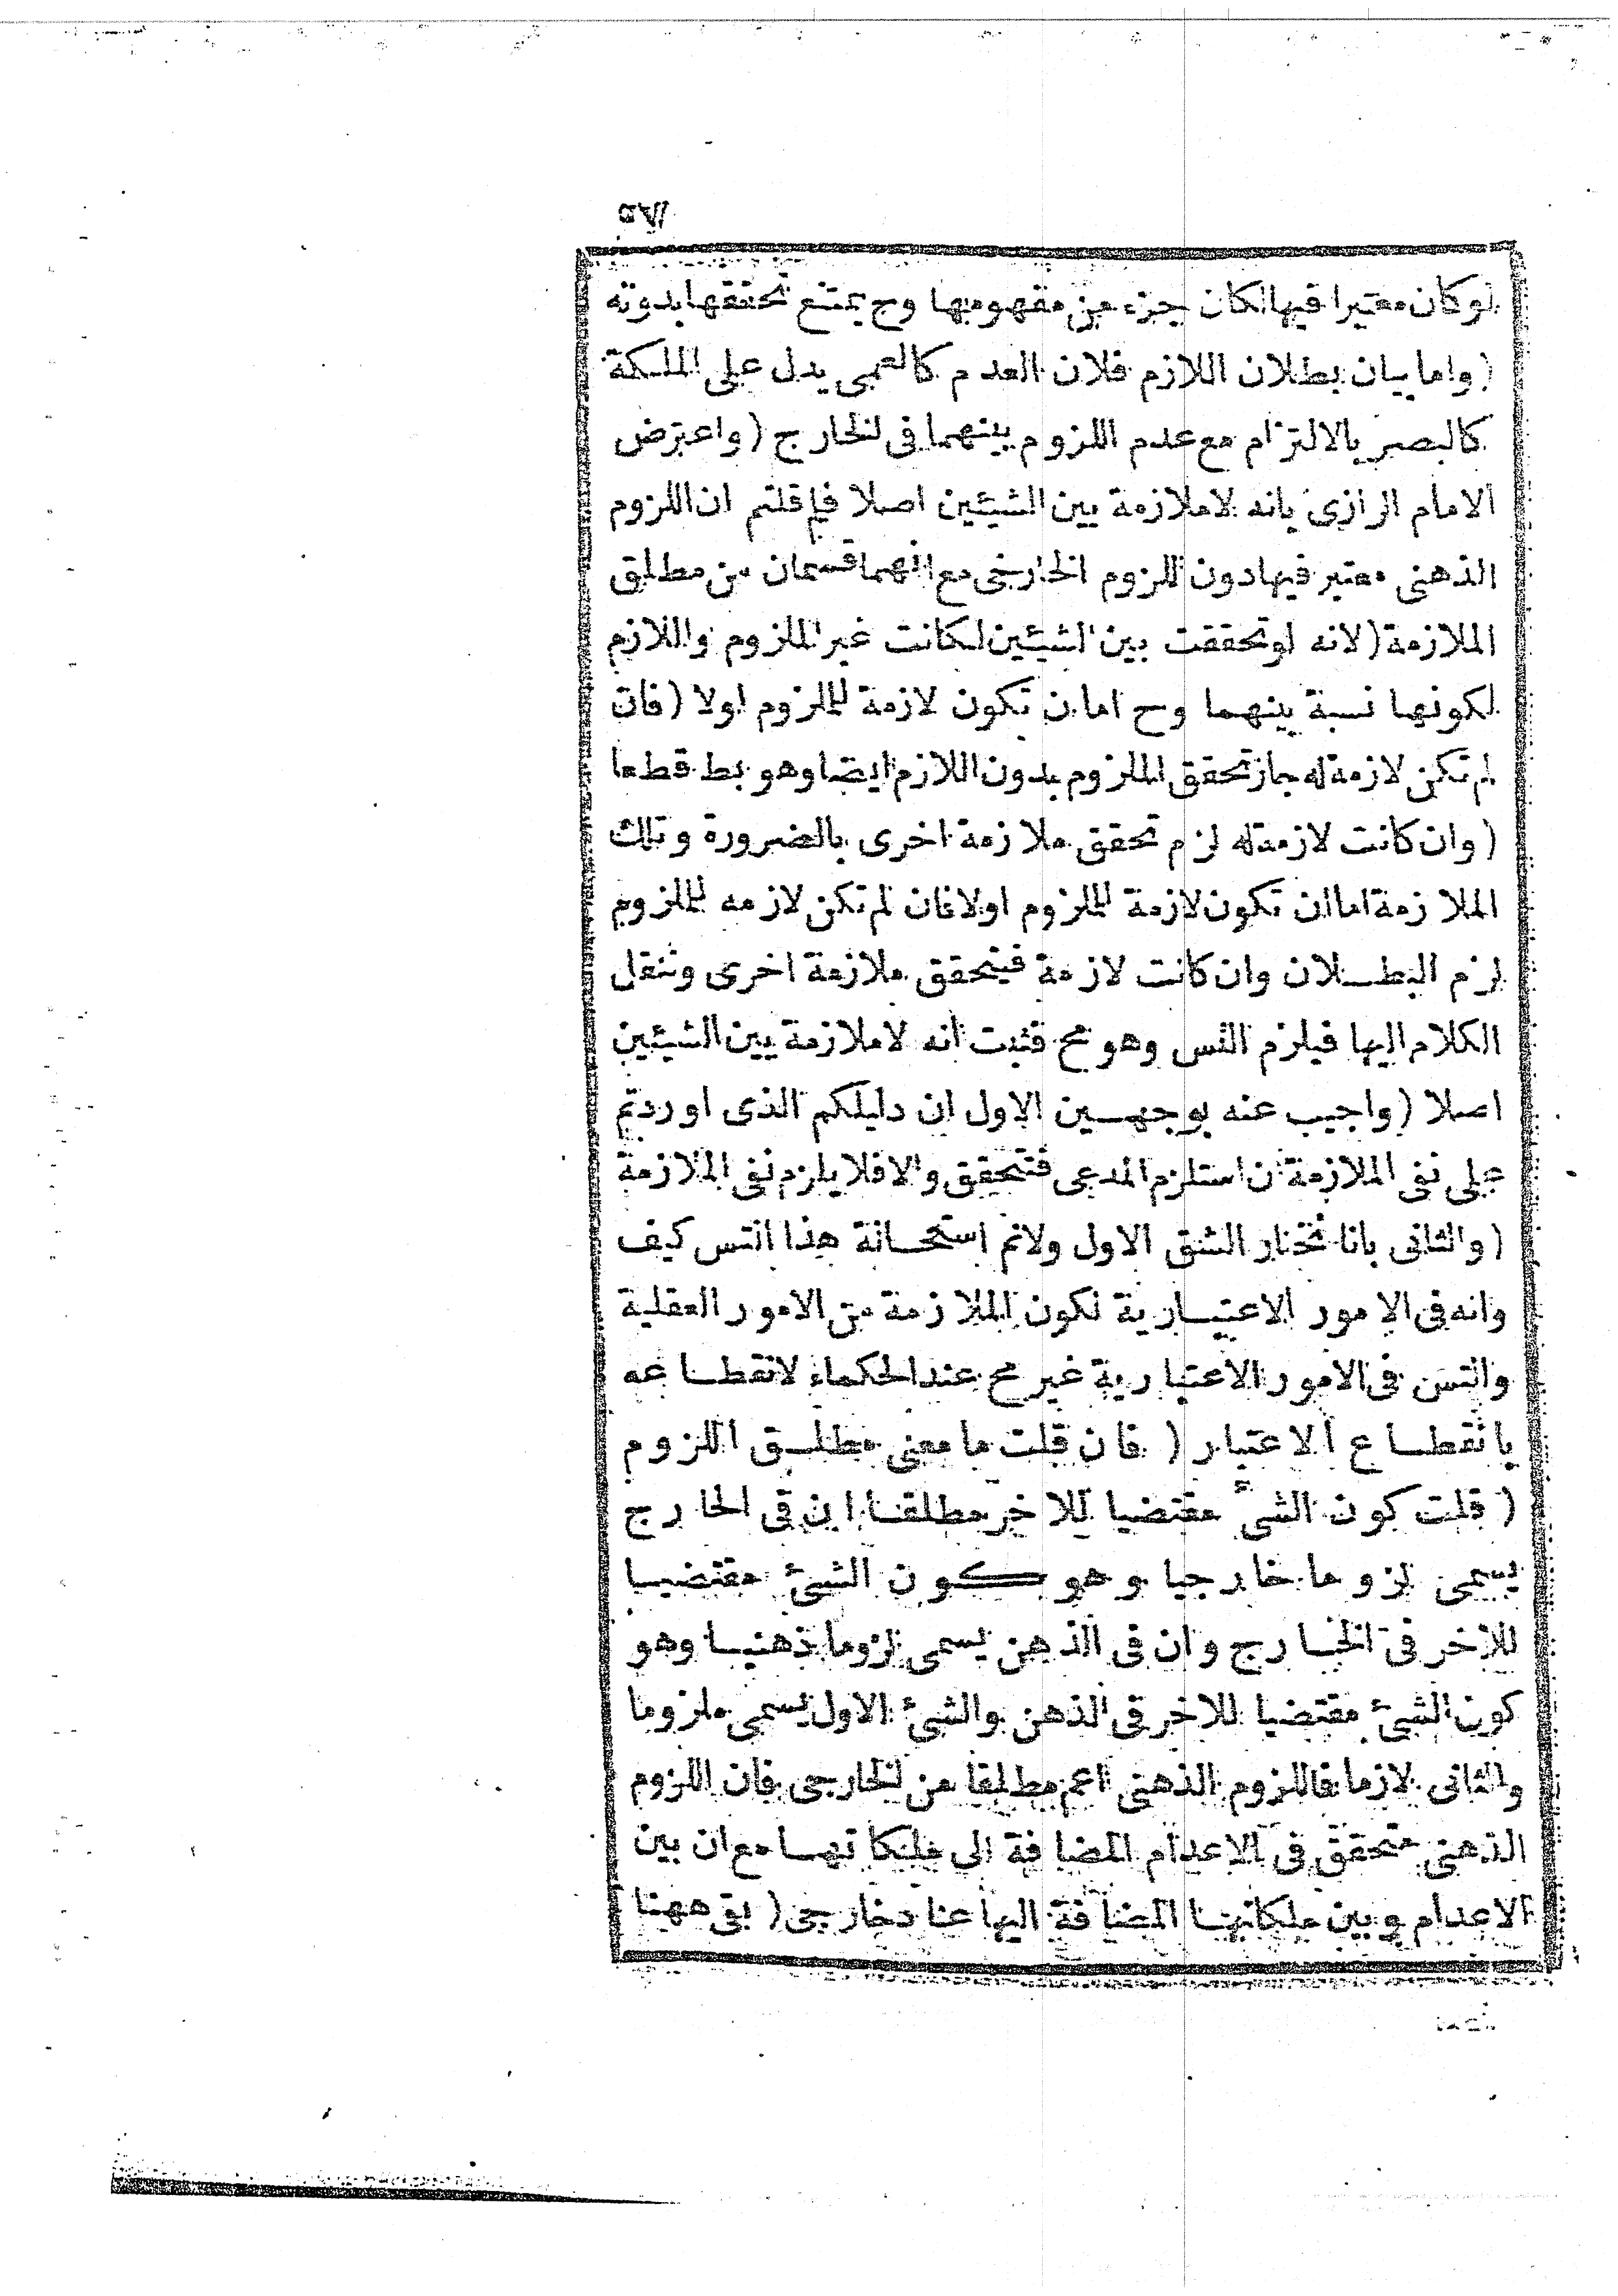 لوكان معتبرا فيها لكان جزء من مفهومها وح يمتنع تحققها بدونه
(واما بيان بطلان اللازم فلان العدم كالعمى يدل على الملكة
كالبصر بالالتزام مع عدم اللزوم بينهما فى الخارج (واعترض
الامام الرازى بانه لاملازمة بين الشيئين اصلا فلم قلتم ان اللزوم
الذهنى معتبر فيها دون اللزوم الخارجى مع انهما قسمان من مطلق
الملازمة (لانه لوتحققت بين الشيئين لكانت غير الملزوم واللازم
لكونها نسبة بينهما وح اما ان تكون لازمة للملزوم اولا (فان
لم تكن لازمة له جاز تحقق الملزوم بدون اللازم ايضا وهو بط قطعا
(وان كانت لازمة له لزم تحقق ملازمة اخرى بالضرورة وتلك
الملازمة اما ان تكون لازمة للملزوم اولا فان لم تكن لازمه للملزوم
لزم البطلان وان كانت لازمة فيتحقق ملازمة اخرى وننقل
الكلام اليها فيلزم التس وهو مح فثبت انه لاملازمة بين الشيئين
اصلا (واجيب عنه بوجهين الاول ان دليلكم الذى اوردتم
على نفى الملازمة ان استلزم المدعى فتتحقق والا فلا يلزم نفى الملازمة
(والثانى بانا نختار الشق الاول ولانم استحالة هذا التس كيف
وانه فى الامور الاعتبارية لكون الملازمة من الامور العقلية
والتس فى الامور الاعتبارية غير مح عند الحكماء لانقطاعه
بانقطاع الاعتبار (فان قلت ما معنى مطلق اللزوم
(قلت كون الشئ مقتضيا للاخر مطلقا ان فى الخارج
يسمى لزوما خارجيا وهو كون الشئ مقتضيا
للاخر فى الخارج وان فى الذهن يسمى لزوما ذهنيا وهو
كون الشئ مقتضيا للاخر فى الذهن والشئ الاول يسمى ملزوما
والثانى لازما فاللزوم الذهنى اعم مطلقا من الخارجى فان اللزوم
الذهنى متحقق فى الاعدام المضافة الى ملكاتها مع ان بين
الاعدام وبين ملكاتها المضافة اليها عنادخارجى (بقى ههنا